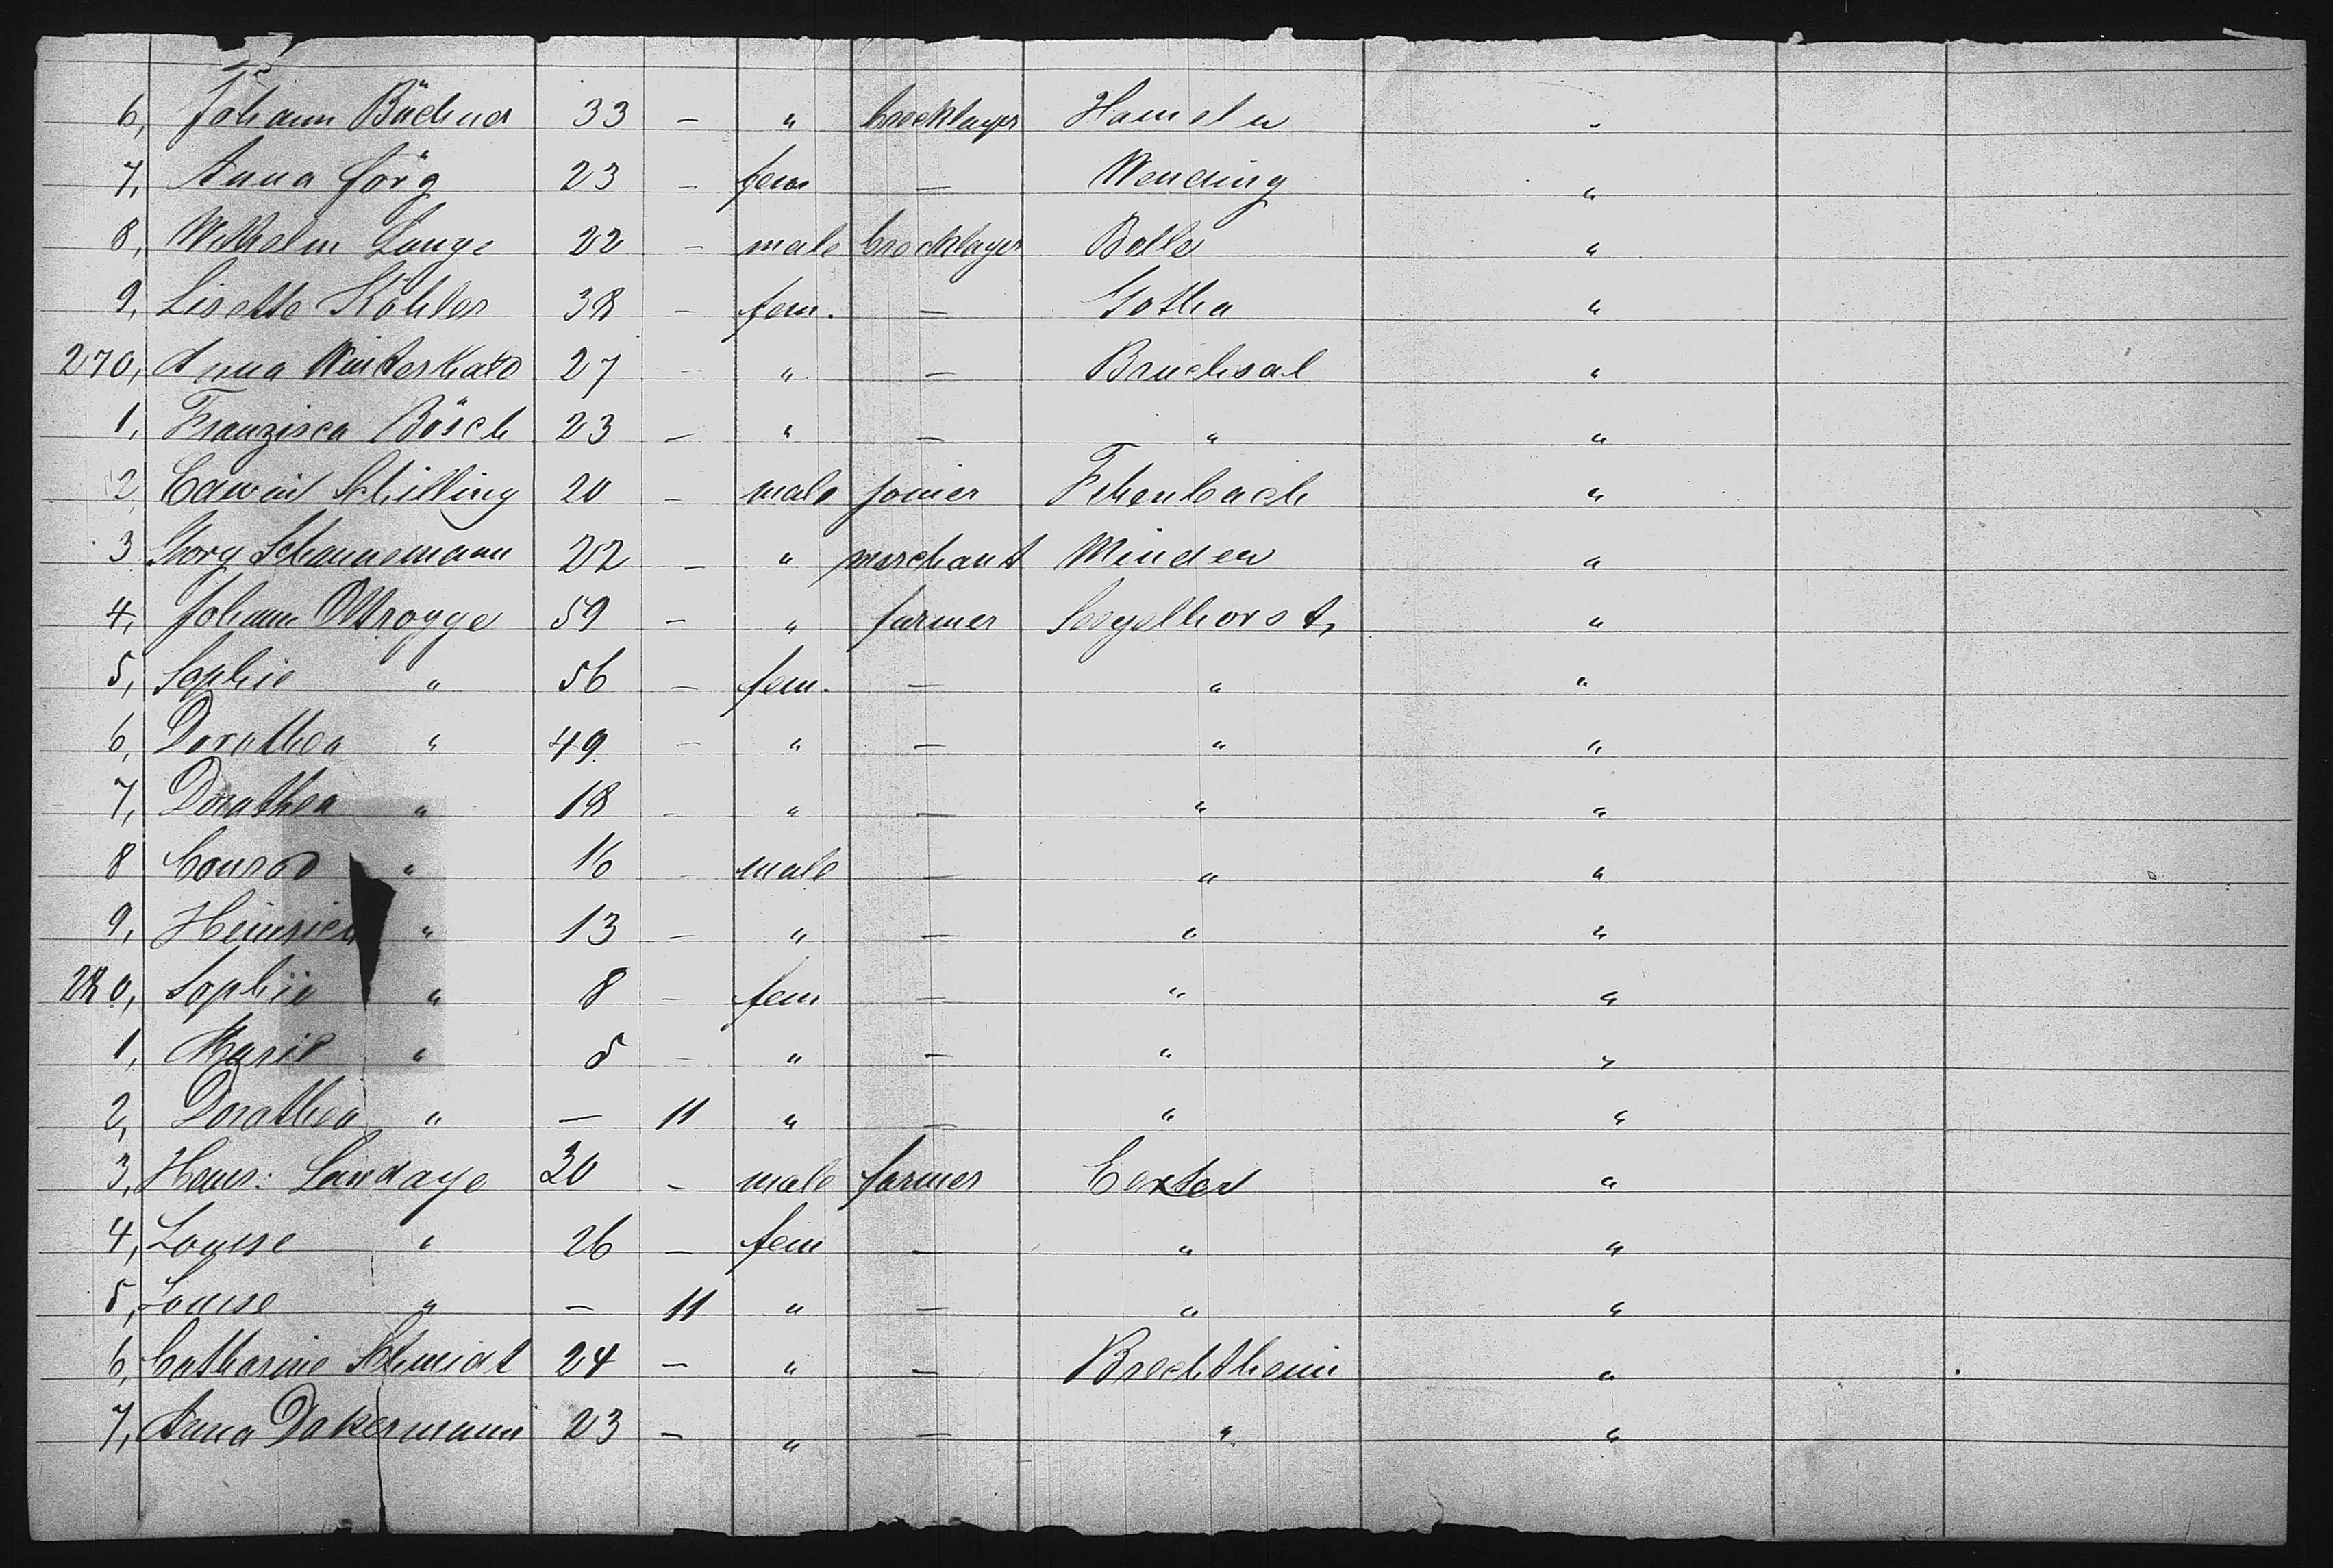 6, Johann Büchner 33 – " brecklayer Hameln "
7, Anna Görg 23 – fem – Wending "
8, Wilhelm Lange 22 – male brecklayer Belle "
9, Lisette Köhler 38 – fem. – Gotha "
270, Anna Winterhald 27 – " – Bruchsal "
1, Franzisca Bösch 23 – " – " "
2 Edwin Schilling 20 – male joiner "
3 Georg Schannemann 22 – " merchant Minden "
4, Johann Ottrogge 59 – " farmer Segelhorst, "
5, Sophie " 56 – fem. – " "
6, Dorathea " 49. – " – " "
7, Dorathea " 18 – " – " "
8 Conrad " 16 – male – " "
9, Heinrich " 13 – " – " "
280, Sophie " 8 – fem – " "
1, Marie " 5 – " – " "
2, Dorathea " – 11 " – " "
3, Henr: Landage 30 – male farmer Exter "
4, Louise " 26 – fem – " "
5, Louise " – 11 " – " "
6, Catharine Schmidt 24 – " – Brechtheim "
7, Anna Dakermann 23 – " – " "